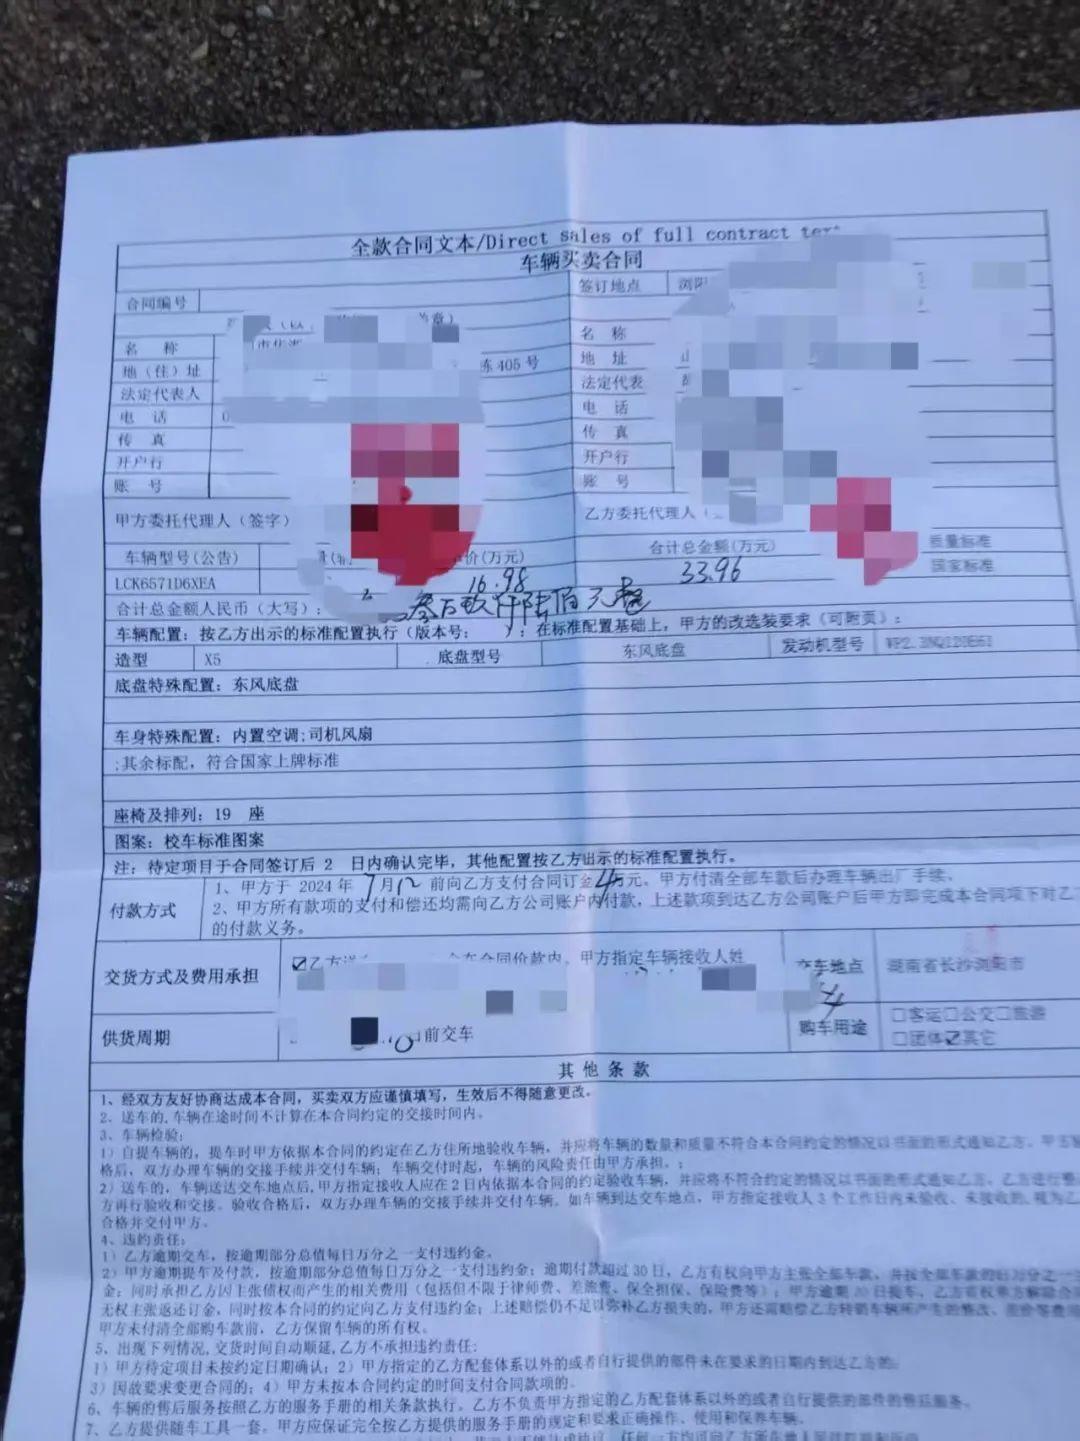 全款合同文本/Direct sales of full contract text
车辆买卖合同
合同编号
签订地点 浏阳
名 称
名 称
地（住）址 栋405号
地 址
法定代表人
法定代表
电 话 0
电 话
传 真
传 真
开户行
开户行
账 号
账 号
甲方委托代理人（签字）
乙方委托代理人（
车辆型号(公告) 价(万元) 合计总金额(万元) 质量标准
LCK6571D6XEA 2 16.98 33.96 国家标准
合计总金额人民币（大写）： 叁万玖仟陆佰元整
车辆配置：按乙方出示的标准配置执行（版本号： ）；在标准配置基础上，甲方的改选装要求（可附页）：
造型 X5 底盘型号 东风底盘 发动机型号
底盘特殊配置：东风底盘
车身特殊配置：内置空调;司机风扇
;其余标配，符合国家上牌标准
座椅及排列：19 座
图案：校车标准图案
注：待定项目于合同签订后 2 日内确认完毕，其他配置按乙方出示的标准配置执行。
付款方式
1、甲方于 2024年 7月12 前向乙方支付合同订金4万元。甲方付清全部车款后办理车辆出厂手续。
2、甲方所有款项的支付和偿还均需向乙方公司账户内付款，上述款项到达乙方公司账户后甲方即完成本合同项下对乙
的付款义务。
交货方式及费用承担 ☑乙方送 合同价款内。甲方指定车辆接收人姓
交车地点 湖南省长沙浏阳市
供货周期 前交车
购车用途 □客运□公交□旅游
□团体☑其它
其 他 条 款
1、经双方友好协商达成本合同，买卖双方应谨慎填写，生效后不得随意更改。
2、送车的,车辆在途时间不计算在本合同约定的交接时间内。
3、车辆检验：
1）自提车辆的，提车时甲方依据本合同的约定在乙方住所地验收车辆，并应将车辆的数量和质量不符合本合同约定的情况以书面的形式通知乙方。甲方验
格后，双方办理车辆的交接手续并交付车辆；车辆交付时起，车辆的风险责任由甲方承担。；
2）送车的，车辆送达交车地点后,甲方指定接收人应在2日内依据本合同的约定验收车辆，并应将不符合约定的情况以书面的形式通知乙方。乙方进行整
方再行验收和交接。验收合格后，双方办理车辆的交接手续并交付车辆。如车辆到达交车地点，甲方指定接收人3个工作日内未验收、未接收的，视为乙
合格并交付甲方。
4、违约责任：
1）乙方逾期交车，按逾期部分总值每日万分之一支付违约金。
2）甲方逾期提车及付款，按逾期部分总值每日万分之一支付违约金；逾期付款超过30日，乙方有权向甲方主张全部车款，并按全部车款的日万分之一
金；同时承担乙方因主张债权而产生的相关费用（包括但不限于律师费、差旅费、保全担保、保险费等）；甲方逾期30日提车，乙方有权单方解除合同
无权主张返还订金，同时按本合同的约定向乙方支付违约金；上述赔偿仍不足以弥补乙方损失的，甲方还需赔偿乙方转销车辆所产生的整改、差价等费用
甲方未付清全部购车款前，乙方保留车辆的所有权。
5、出现下列情况,交货时间自动顺延,乙方不承担违约责任:
1）甲方待定项目未按约定日期确认；2）甲方指定的乙方配套体系以外的或者自行提供的部件未在要求的日期内到达乙方的;
3）因故要求变更合同的；4）甲方未按本合同约定的时间支付合同款项的。
6、车辆的售后服务按照乙方的服务手册的相关条款执行。乙方不负责甲方指定的乙方配套体系以外的或者自行提供的部件的售后服务。
7、乙方提供随车工具一套。甲方应保证完全按乙方提供的服务手册的规定和要求正确操作、使用和保养车辆。